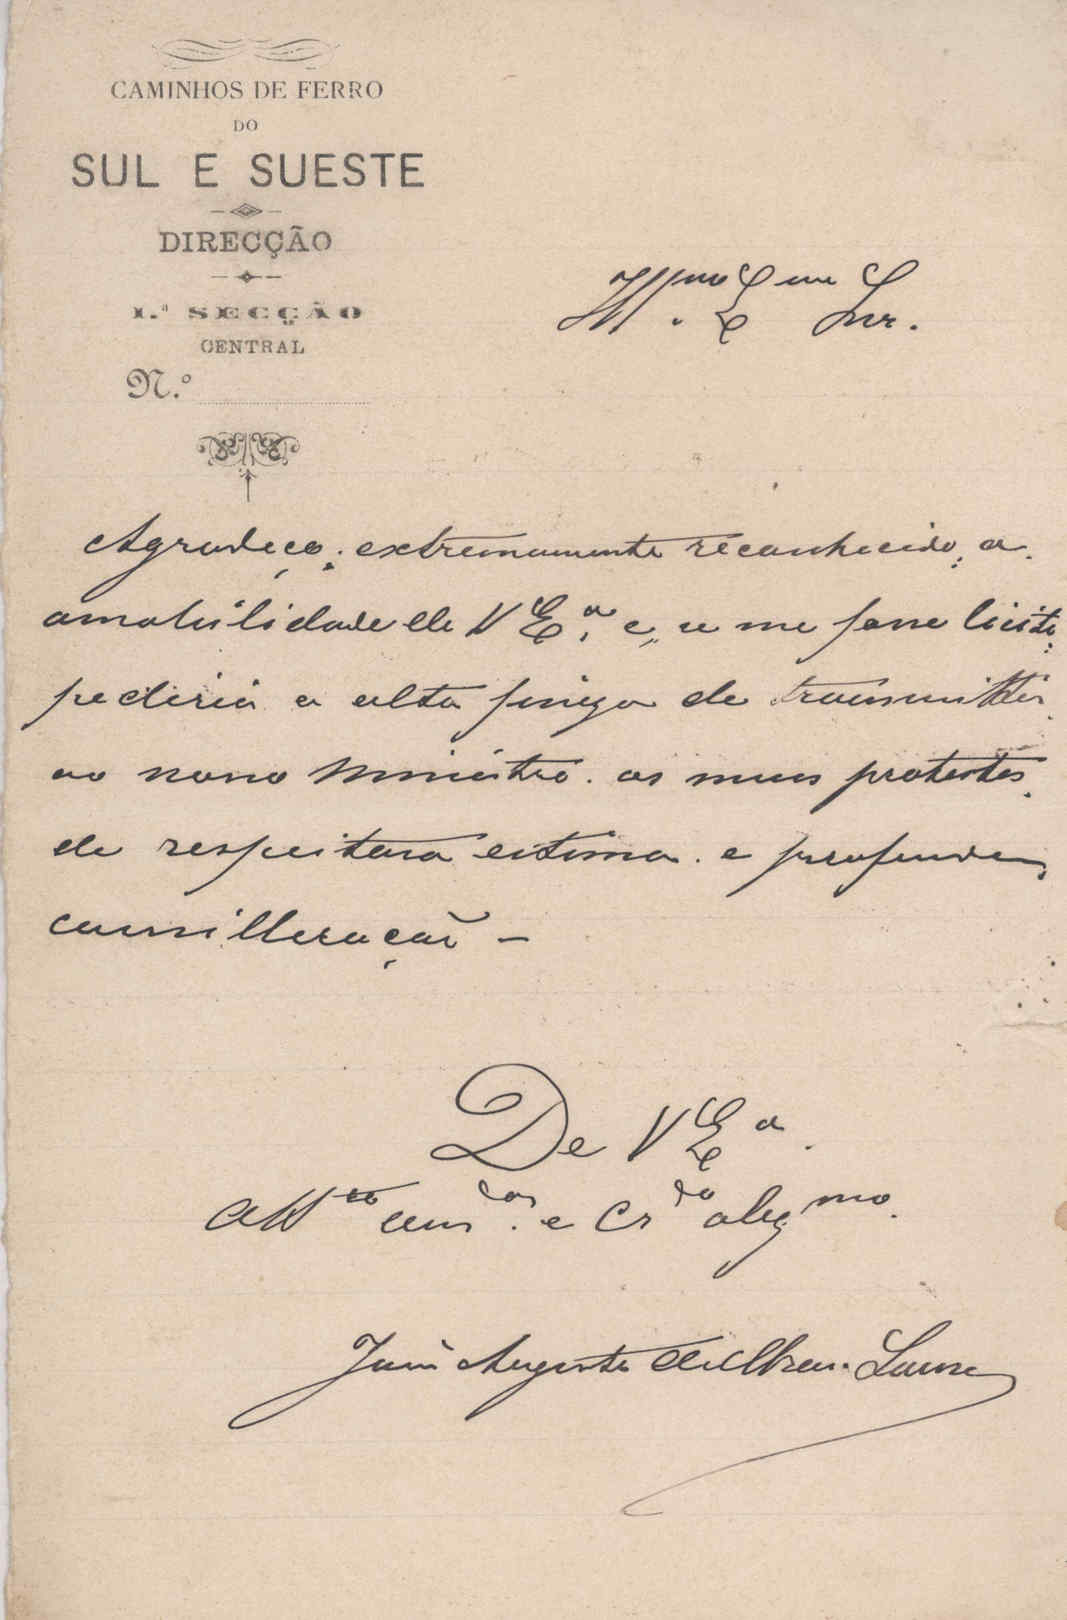 CAMINHOS DE FERRO
DO
SUL E SUESTE
DIRECÇÃO
1.ª SECÇÃO
CENTRAL
N.º
Illmo Exmo Snr.
Agradeço extremamente reconhecido, a
amabilidade de V Exa, e, se me fosse licito
pediria a alta fineza de transmittir
ao novo Ministro os meus protestos
de respeitosa estima e profunda
consideração –
De V Exa
Attto e Crdo obgmo
João Augusto de Abreu